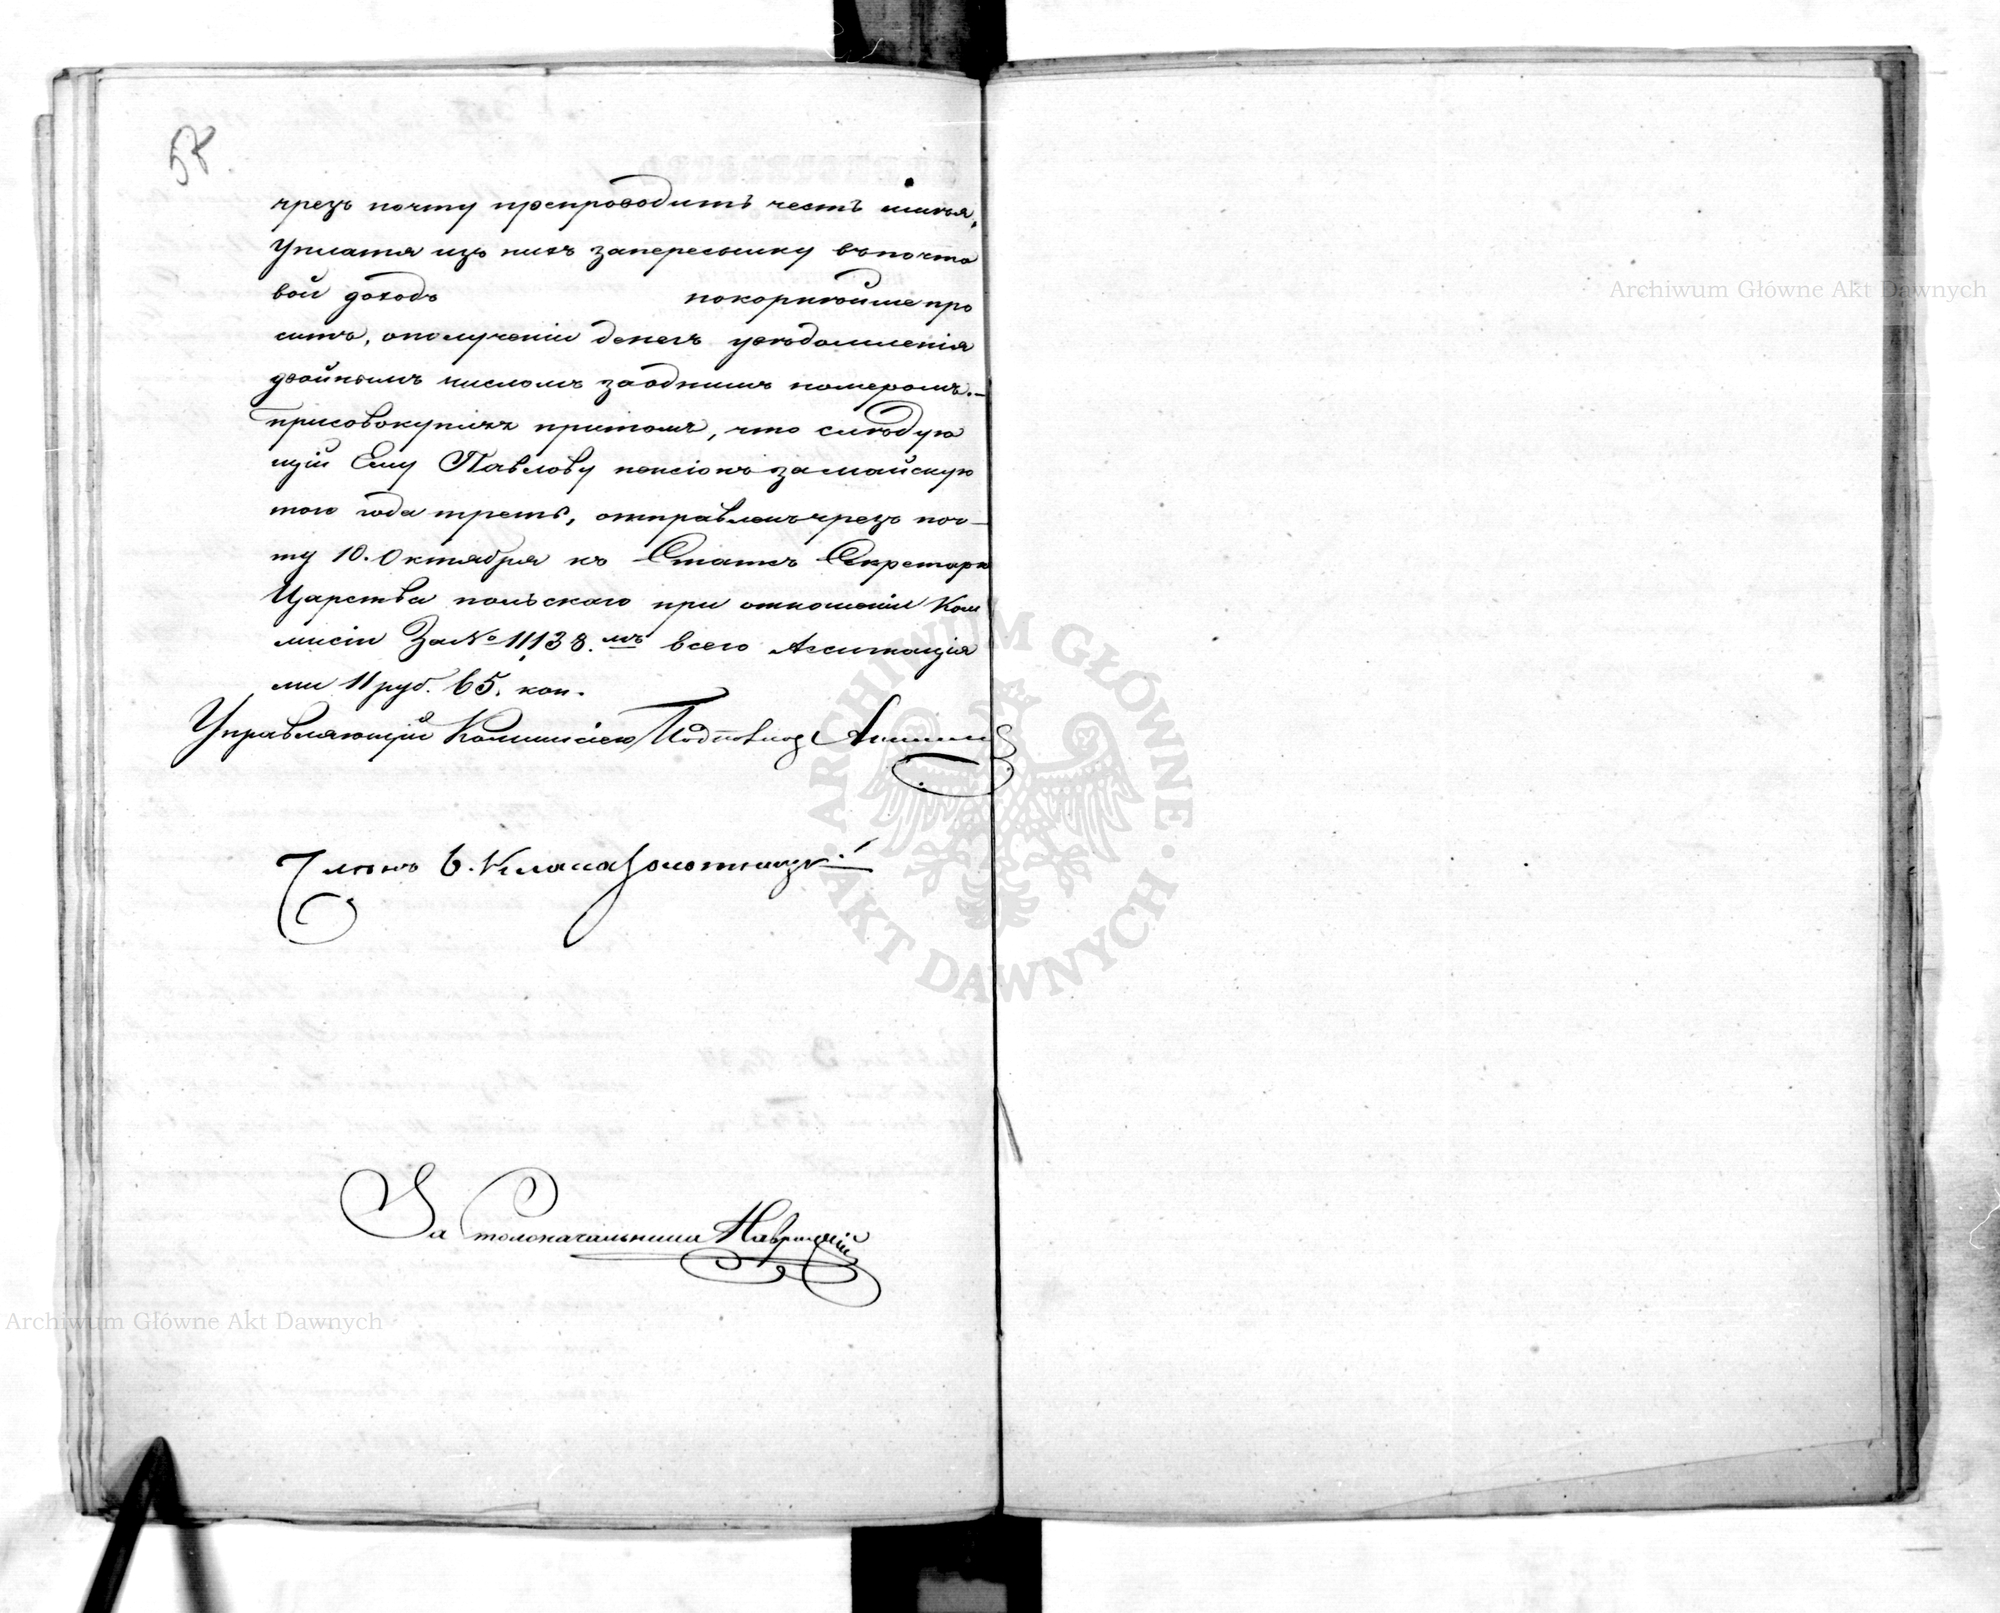 58.
чрезъ почту препроводить честь имѣя,
Уплатя изъ нихъ запересылку въпочто
вой доходъ покорнѣйше про
ситъ, ополученіи денегъ увѣдомленія
двойнымъ числомъ заоднимъ номеромъ.—
присовокупляя притомъ, что слѣдую
щій Ему Павлову пенсіонъ замайскую
того года треть, отправленъ чрезъ поч—
ту 10. Октября къ Статсъ Секретарю
Царства польскаго при отношеніи Ком
мисіи За № 11,138.мъ всего Ассигнація
ми 11 руб. 65. коп.
Управляющій Коммисіею Подполков
Членъ 6. Класа Золотницкі
За Столоначальника
Archiwum Główne Akt Dawnych
Archiwum Główne Akt Dawnych
ARCHIWUM GŁÓWNE
AKT DAWNYCH